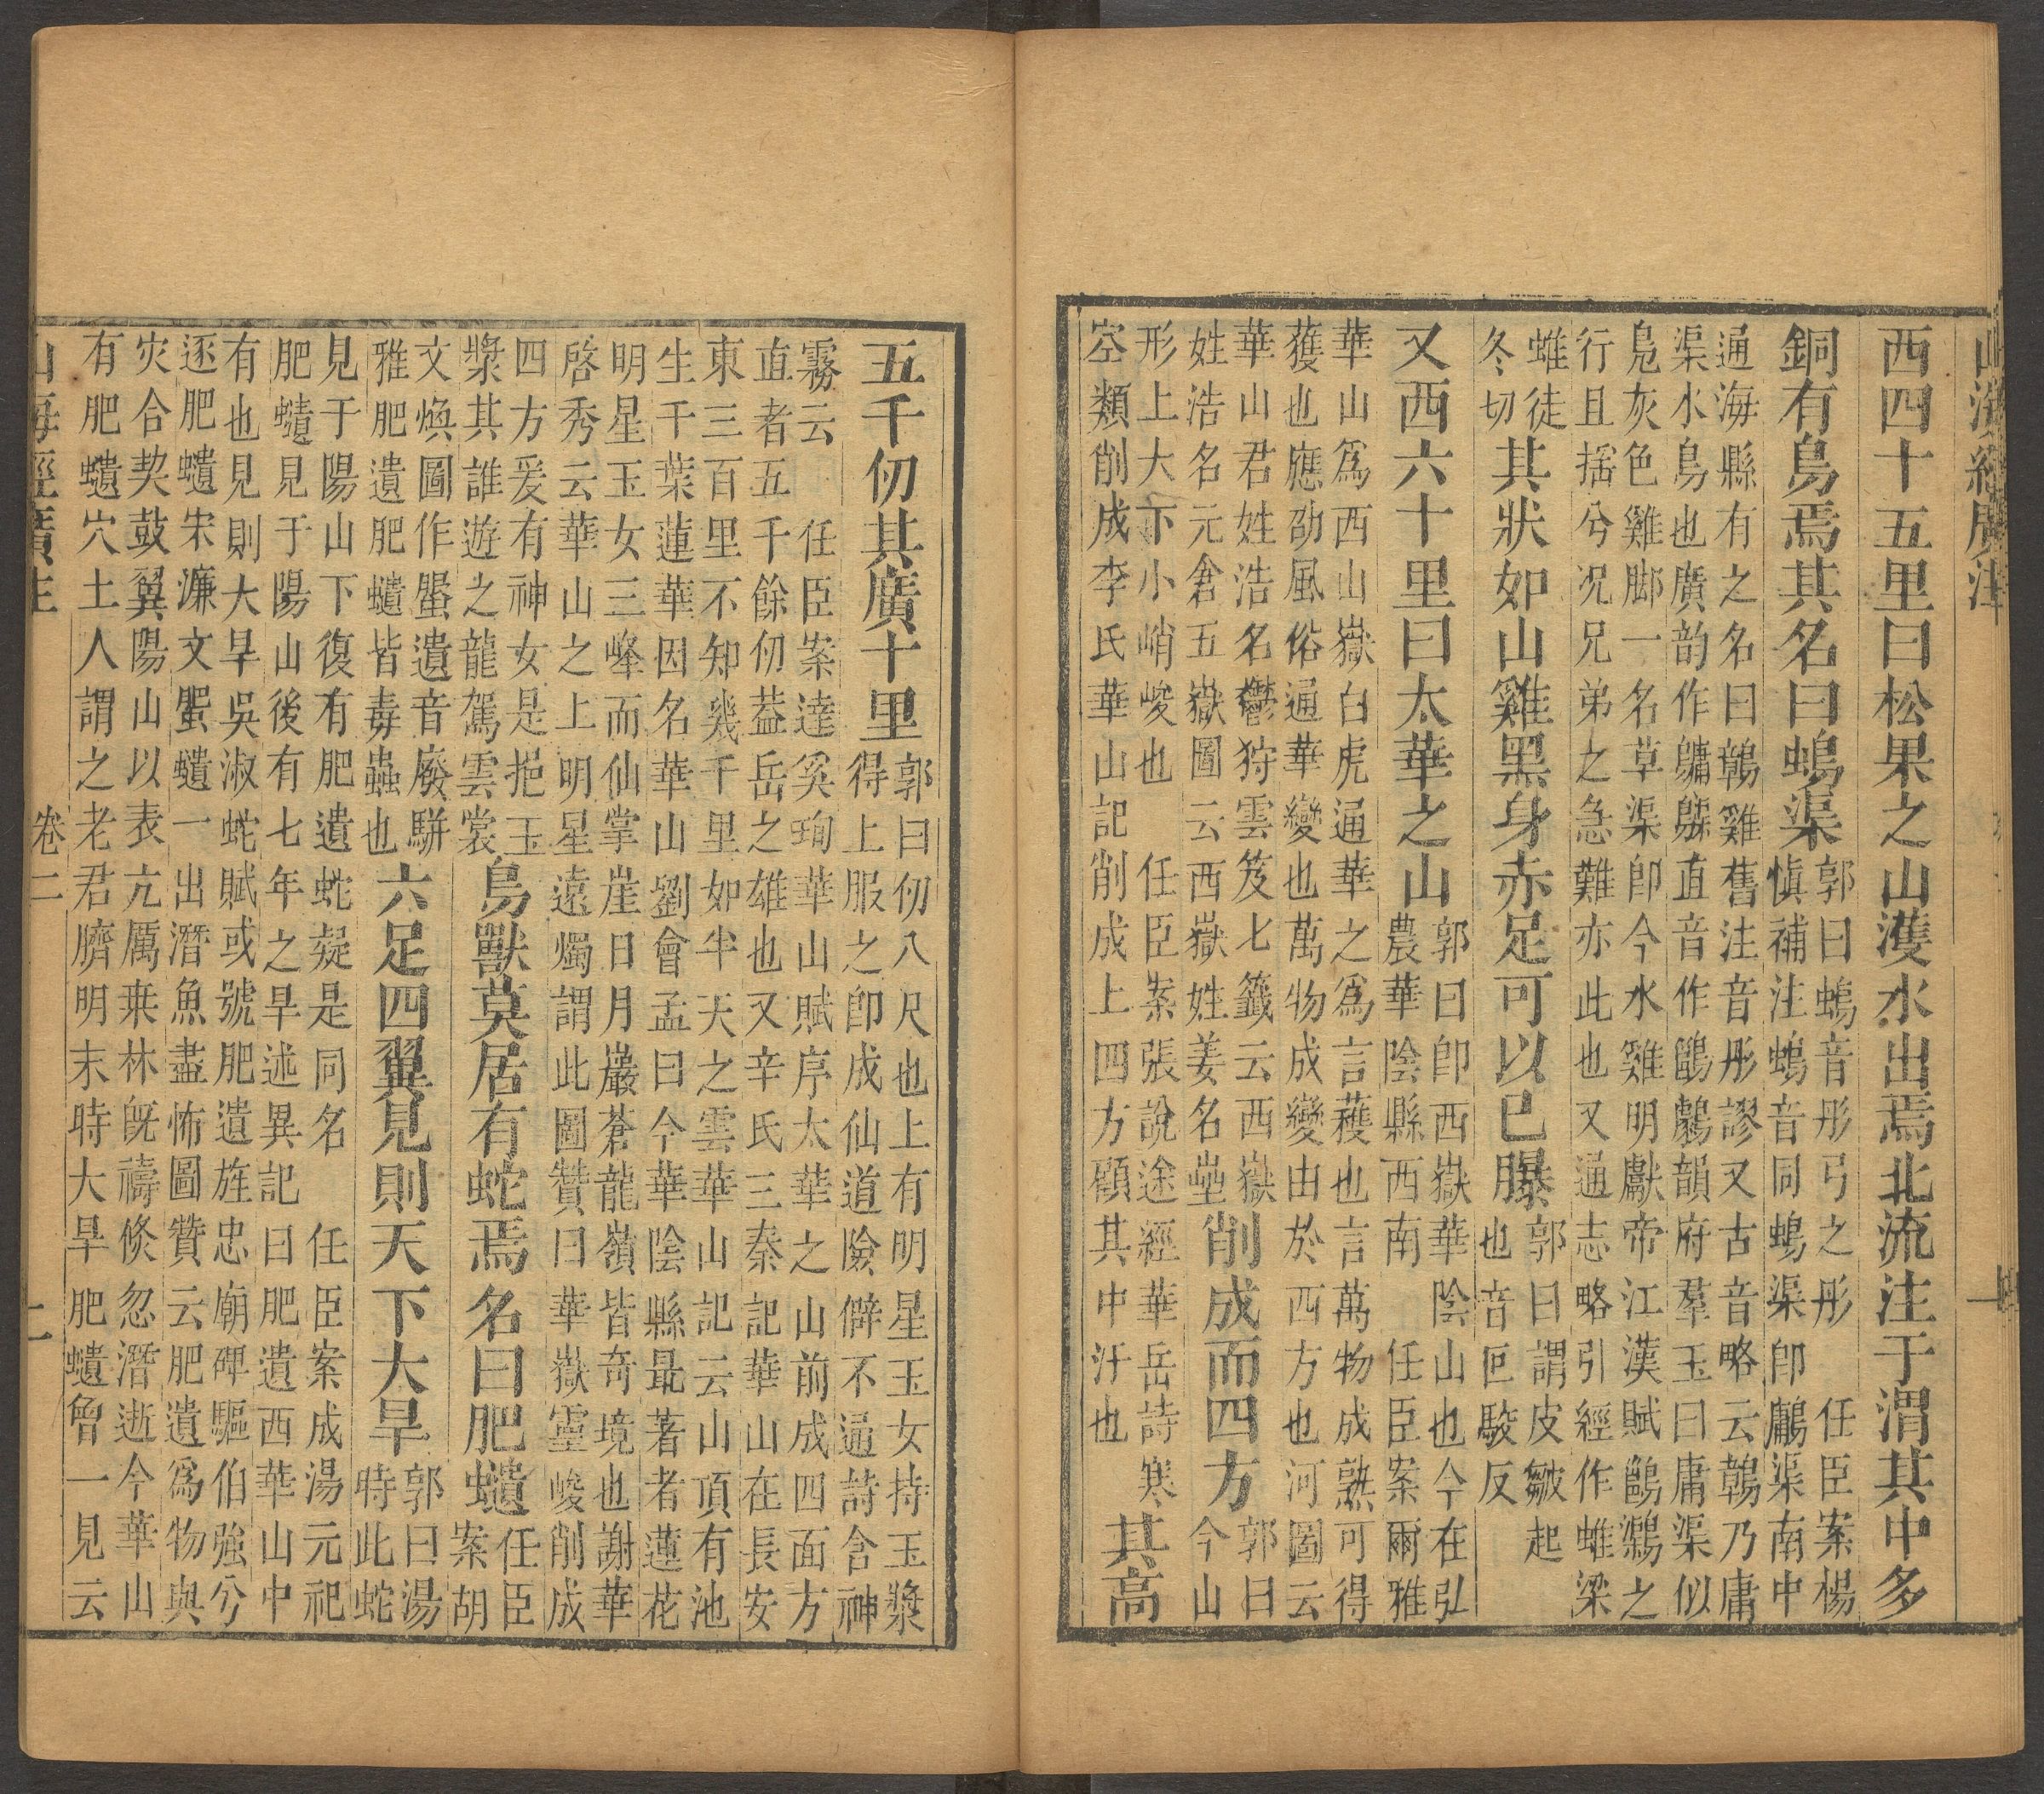 山海經廣注
西四十五里曰松果之山濩水出焉北流注于渭其中多
銅有鳥焉其名曰䳋渠
郭曰䳋音彤弓之彤 任臣案楊
慎補注䳋音同䳋渠卽鷛渠南中
通海縣有之名曰鶾雞舊注音彤謬又古音略云鶾乃庸
渠水鳥也廣韵作鷛直音作韻府羣玉曰庸渠似
鳧灰色雞脚一名草渠卽今水雞明獻帝江漢賦之
行且搖兮况兄弟之急難亦此也又通志略引經作蜼梁
蜼徒
冬切
其狀如山雞黑身赤足可以已㿺
郭曰謂皮皺起
也音叵駮反
又西六十里曰太華之山
郭曰卽西嶽華陰山也今在弘
農華陰縣西南 任臣案爾雅
華山爲西山嶽白虎通華之爲言穫也言萬物成熟可得
穫也應劭風俗通華變也萬物成變由於西方也河圖云
華山君姓浩名鬱狩雲笈七籤云西嶽
姓浩名元倉五嶽圖云西嶽姓姜名壘
削成而四方
郭曰
今山
形上大下小峭峻也 任臣案張說途經華岳詩寒
空類削成李氏華山記 削成上四方顧其中汙也
其高
五千仞其廣十里
郭曰仞八尺也上有明星玉女持玉漿
得上服之卽成仙道險僻不通詩含神
霧云 任臣案達奚珣華山賦序太華之山前成四面方
直者五千餘仞葢岳之雄也又辛氏三秦記華山在長安
東三百里不知幾千里如半天之雲華山記云山頂有池
生千葉蓮華因名華山劉會孟曰今華陰縣最著者蓮花
明星玉女三峰而仙掌崖日月巖蒼龍嶺皆奇境也謝華
啓秀云華山之上明星遠燭謂此圖贊曰華嶽靈峻削成
四方爰有神女是挹玉
漿其誰遊之龍駕雲裳
鳥獸莫居有蛇焉名曰肥𧔥
任臣
案胡
文煥圖作蜰遺音廢駢
雅肥遺肥𧔥皆毒蟲也
六足四翼見則天下大旱
郭曰湯
時此蛇
見于陽山下復有肥遺蛇疑是同名 任臣案成湯元祀
肥𧔥見于陽山後有七年之旱述異記曰肥遺西華山中
有也見則大旱吳淑蛇賦或號肥遺旌忠廟碑驅伯強兮
逐肥𧔥宋濂文蜰𧔥一出潛魚盡怖圖贊云肥遺爲物與
灾合契鼓翼陽山以表亢厲桒林旣禱倏忽潛逝今華山
有肥𧔥穴土人謂之老君臍明末時大旱肥𧔥曾一見云
山海經廣注 卷二 二